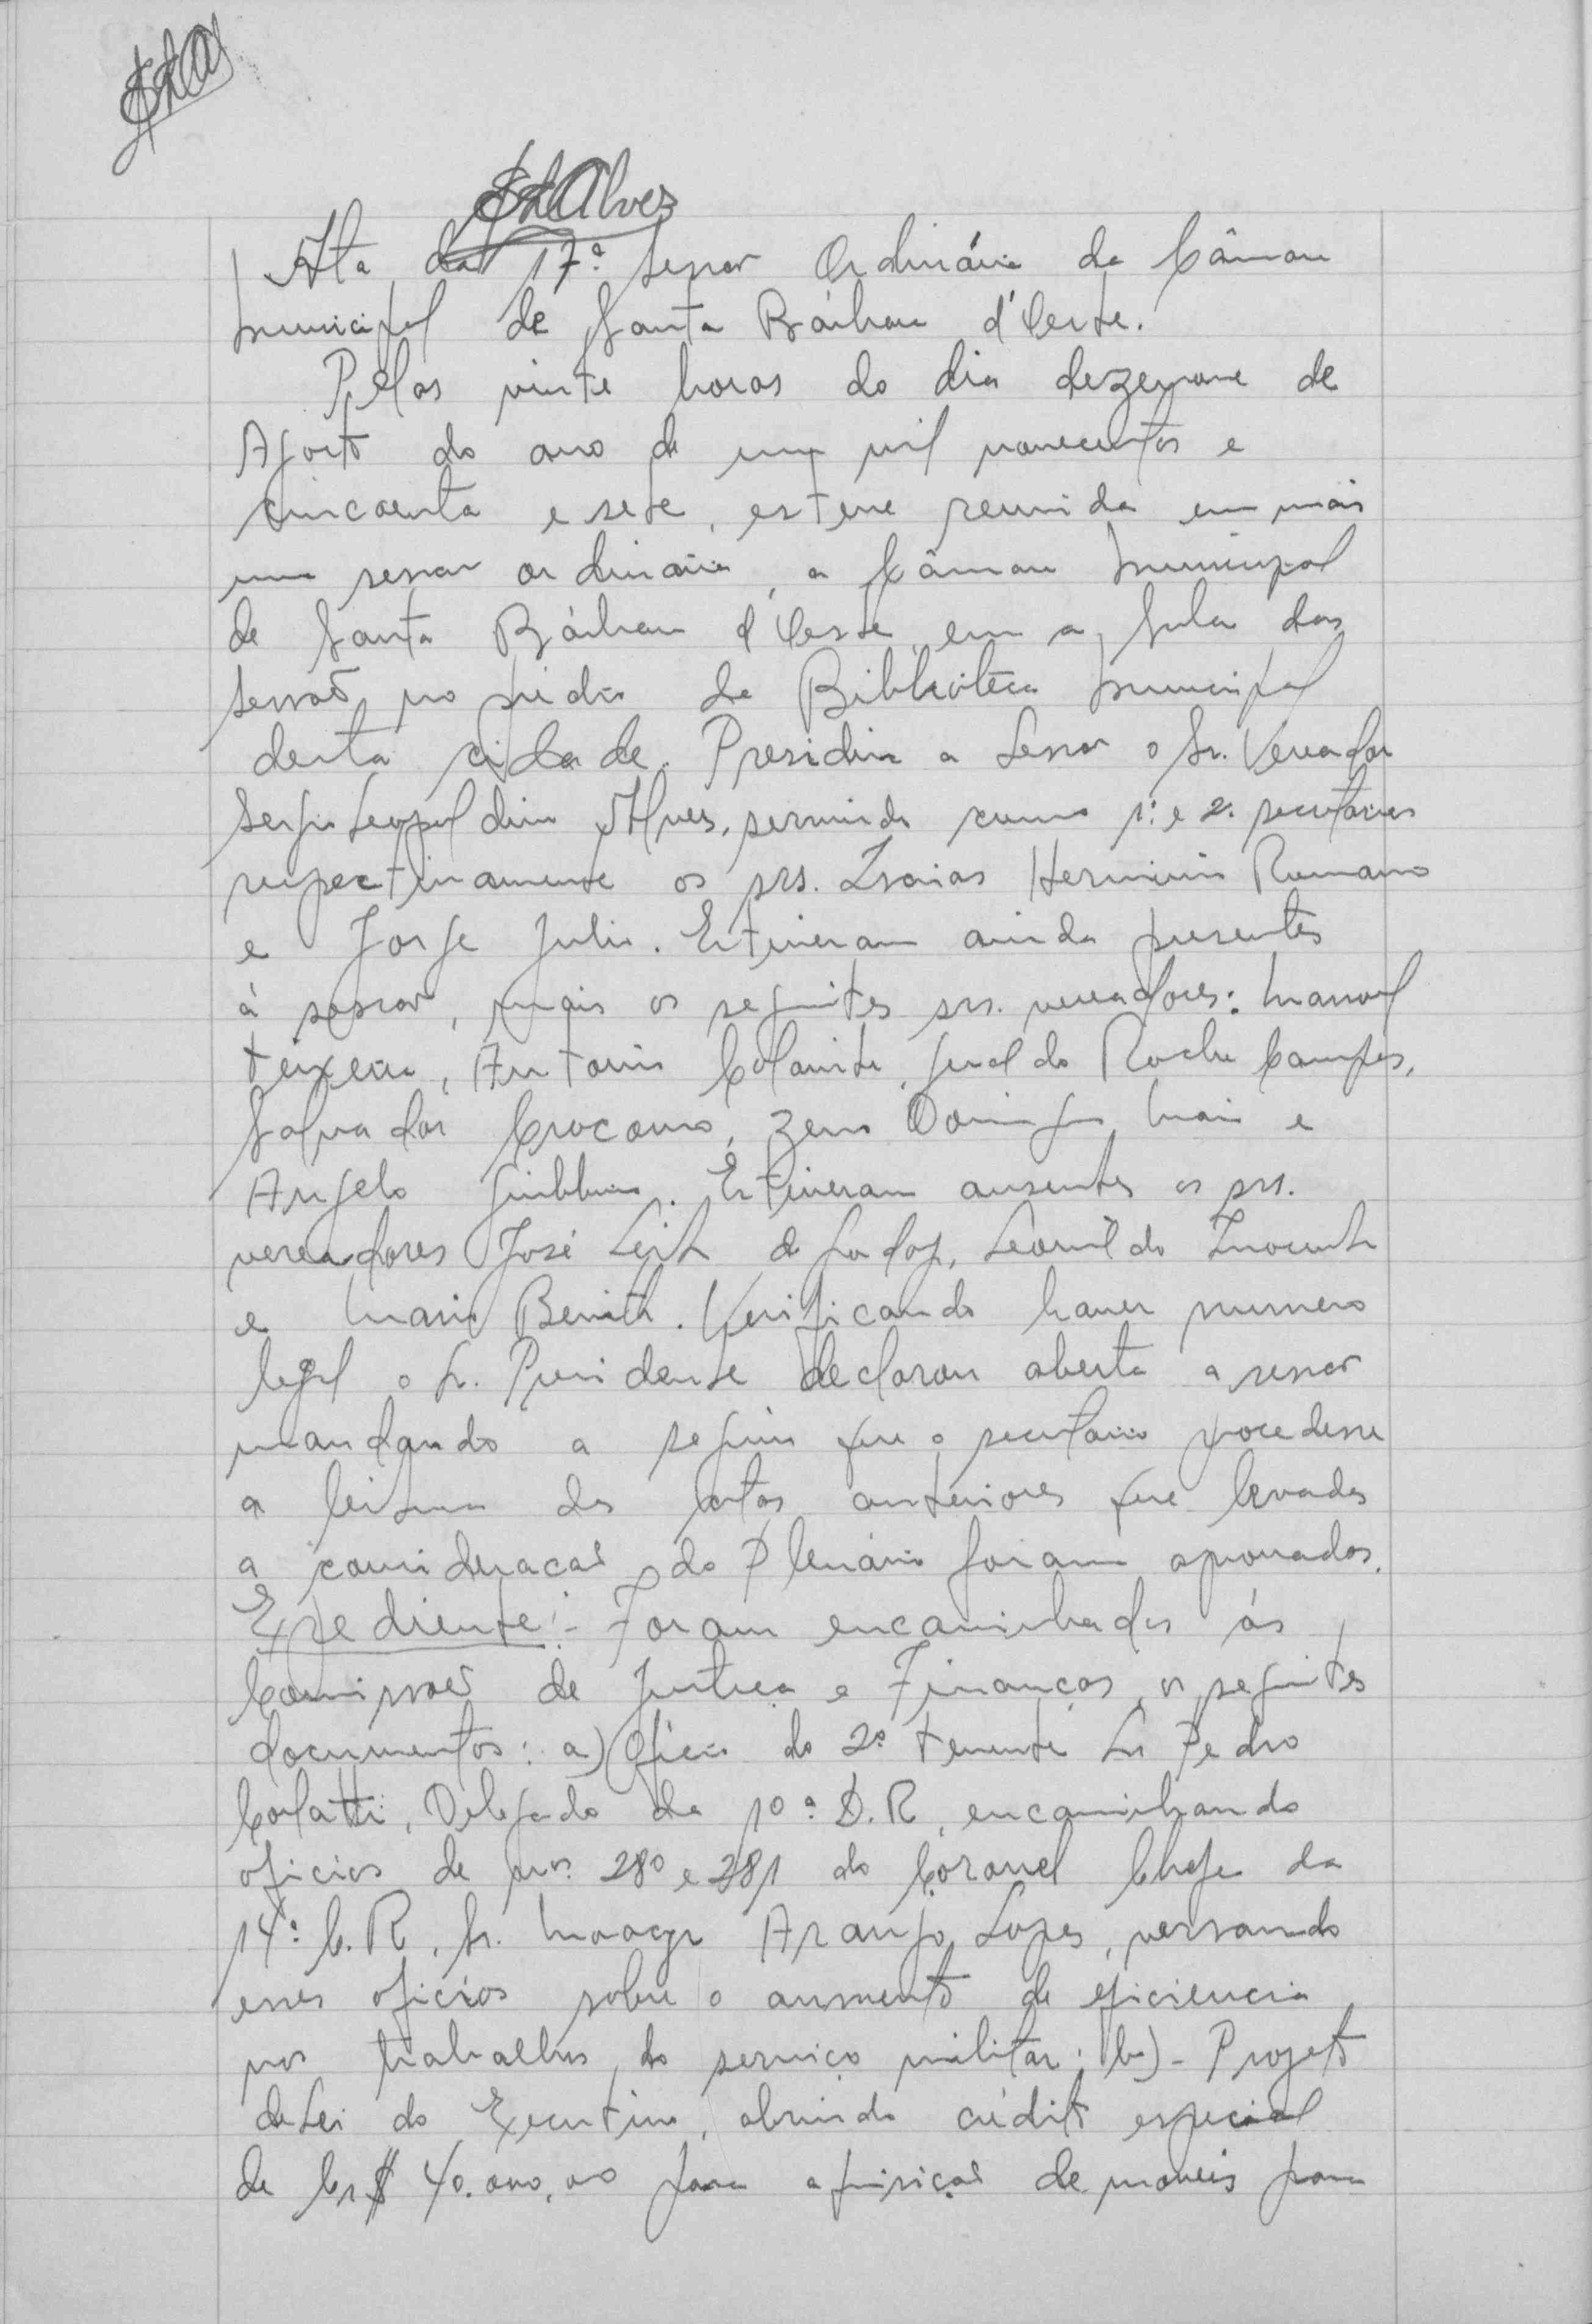 SLAlves
Ata da 17ª sessão Ordinária da Câmara
Municipal de Santa Bárbara d'Oeste.
Pelas vinte horas do dia dezenove de
Agosto do ano de um mil novecentos e
cincoenta e sete, esteve reunida em mais
uma sessão ordinária, a Câmara Municipal
de Santa Bárbara d'Oeste, em a Sala das
sessões no prédio da Biblioteca Municipal
desta cidade. Presidiu a sessão o Sr. Vereador
Sergio Leopoldino Alves, servindo como 1º e 2º secretários
respectivamente os srs. Isaias Herminio Romano
e Jorge Julio. Estiveram ainda presentes
á sessão, mais os seguintes srs. vereadores: Manoel
Teixeira, Antonio Geraldo Rocha Campos,
Salvador Crocomo, Zeno Domingos Maia e
Angelo Giubbina. Estiveram ausentes os srs.
vereadores José Leite de Godoy, Leonildo Inocente
e Mario Benith. Verificando haver numero
legal o Sr. Presidente declarou aberta a sessão
mandando a seguir que o secretario procedesse
a leitura das atas anteriores que levadas
a consideração do Plenário foram aprovadas.
Expediente:- Foram encaminhados ás
Comissões de Justiça e Finanças os seguintes
documentos: a) Oficio do 2º tenente Sr. Pedro
Colatti, Delegado da 10ª D.R, encaminhando
oficios de nºs. 280 e 281 do Coronel Chefe da
14ª C.R, Sr. Moacyr Araujo Lopes, versando
esses oficios sobre o aumento de eficiencia
nos trabalhos do serviço militar; b)- Projeto
de Lei do Executivo, abrindo crédito especial
de Cr$ 40.000,00 para aquisição de moveis para